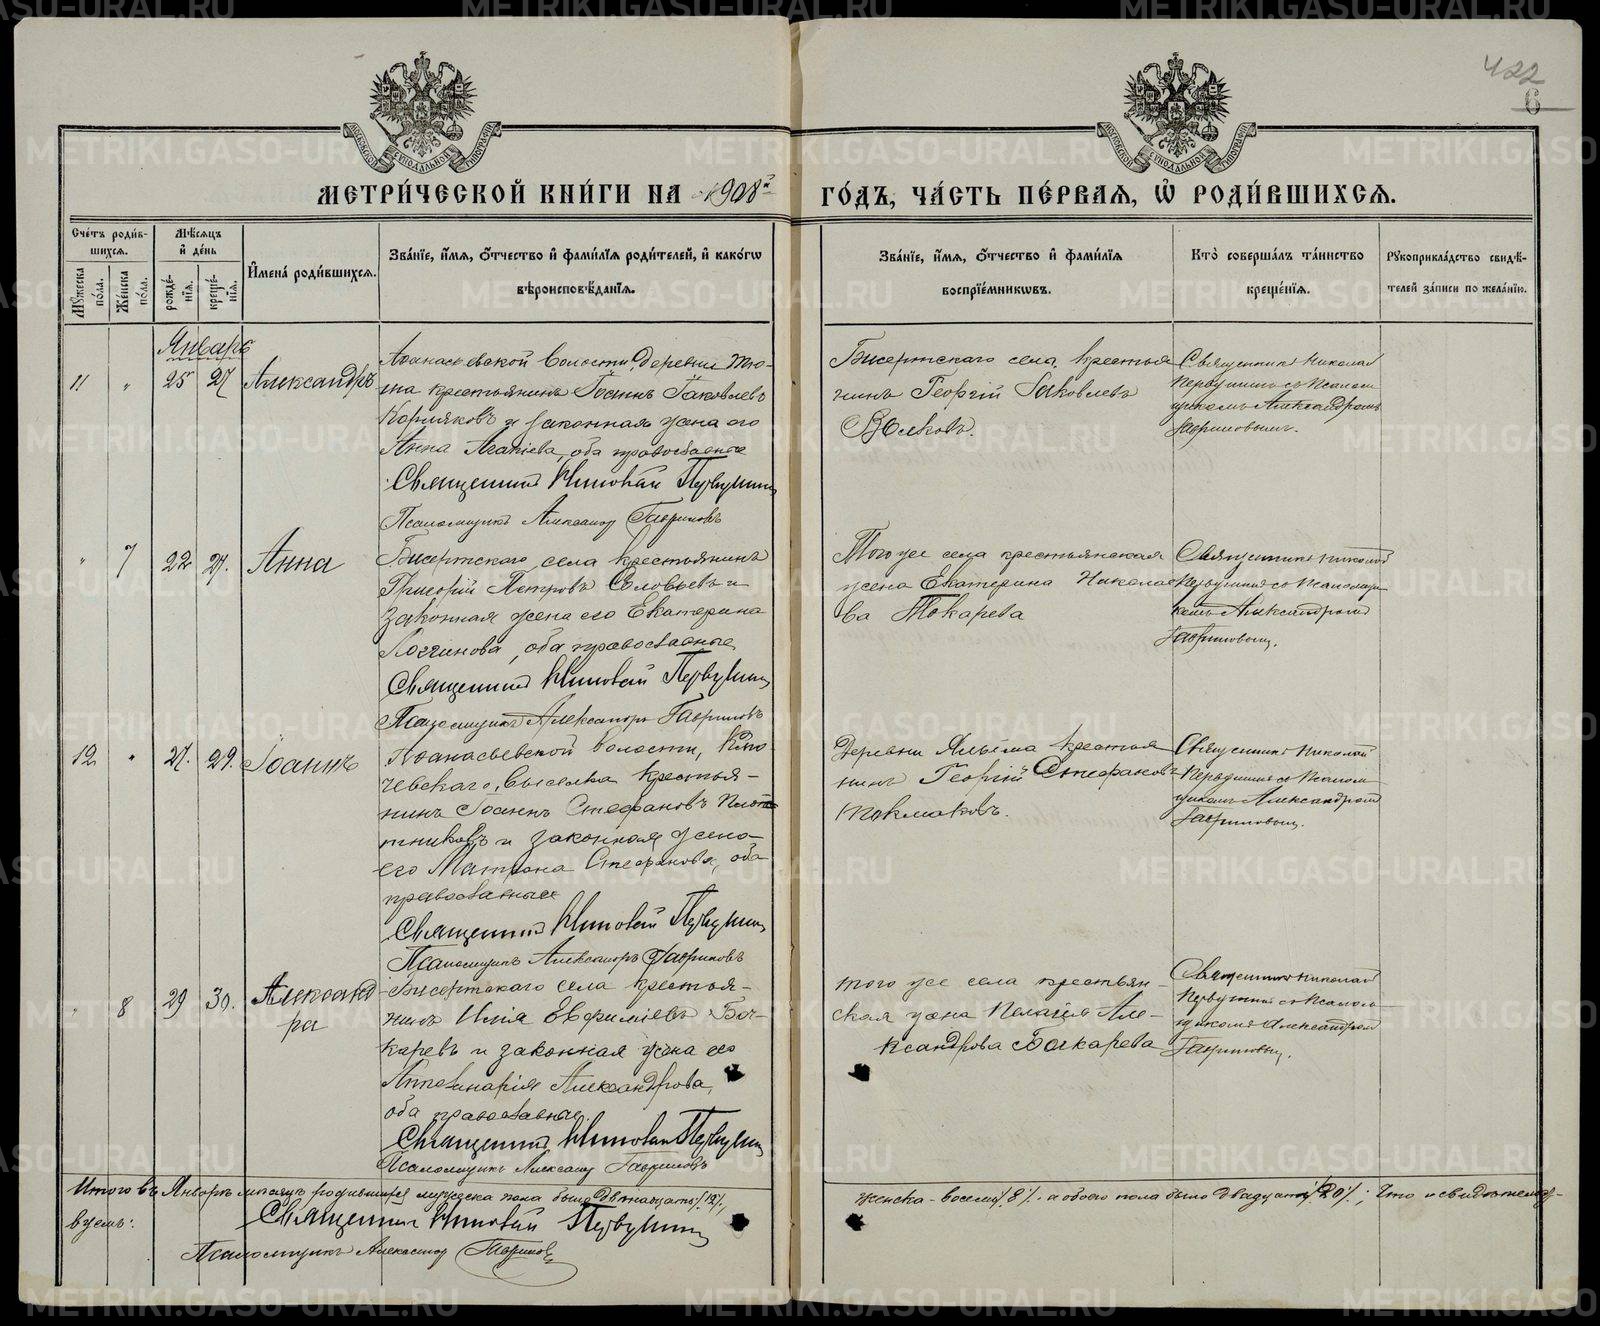 422
6
МЕТРИ́ЧЕСКОЙ КНИ́ГИ НА 1908й
ГО́ДЪ, ЧА́СТЬ ПЕ́РВАЯ, Ѡ҆ РОДИ́ВШИХСЯ.
Сче́тъ роди́в-
шихся.
Мѣ́сяцъ
и҆ де́нь
Мꙋ́жеска по́ла.
Же́нска по́ла.
рожде́-
нїѧ.
креще́-
нїѧ.
И҆мена̀ роди́вшихся.
Зва́нїе, и҆́мя, ѻ҆́тчество и҆ фами́лїя роди́телей, и҆ како́гѡ
вѣроисповѣ́данїя.
Зва́нїе, и҆́мя, ѻ҆́тчество и҆ фами́лїя
воспрїе́мниковъ.
Кто̀ соверша́лъ та́инство
креще́нїя.
Рꙋкоприкла́дство свидѣ́-
телей за́писи по жела́нїю.
Январь
11 " 25 27 Александръ
Аѳанасьевской волости, деревни Тю-
ша крестьянинъ Іоаннъ Іаковлевъ
Коряковъ и законная жена его
Анна Агапіева, оба православные
Священникъ Николай Первушинъ
Псаломщикъ Александръ Гавриловъ
Бисертскаго села, крестья-
нинъ Георгій Іаковлевъ
Волковъ.
Священникъ Николай
Первушинъ съ Псалом
щикомъ Александромъ
Гавриловымъ.
" 7 22 27. Анна
Бисертскаго села крестьянинъ
Григорій Петровъ Соловьевъ и
законная жена его Екатерина
Логгинова, оба православные
Священникъ Николай Первушинъ
Псаломщикъ Александръ Гавриловъ
Того же села крестьянская
жена Екатерина Николае
ва Токарева
Священникъ Николай
Первушинъ съ Псаломщи
комъ Александромъ
Гавриловымъ.
12 " 27. 29. Іоаннъ
Аѳанасьевской волости, Клю-
чевскаго, выселка крестья-
нинъ Іоаннъ Стефановъ Плот
никовъ и законная жена
его Матрона Стефанова, оба
православные
Священникъ Николай Первушинъ
Псаломщикъ Александръ Гавриловъ
Деревни крестья
нинъ Георгій Стефановъ
Токмаковъ.
Священникъ Николай
Первушинъ съ Псалом
щикомъ Александромъ
Гавриловымъ.
" 8 29 30. Александ
ра
Бисертскаго села крестья-
нинъ Илія Евфиміевъ Бо-
каревъ и законная жена его
Апполинарія Александрова,
оба православные.
Священникъ Николай Первушинъ
Псаломщикъ Александръ Гавриловъ
Того же села крестьян-
ская жена Пелагія Але-
ксандрова Бокарева
Священникъ Николай
Первушинъ съ Псалом
щикомъ Александромъ
Гавриловымъ.
Итого въ Январѣ мѣсяцѣ родившихся мужеска пола было двѣнадцать /12/,
женска - восемь /8/ а обоего пола было двадцать /20/; Что и свидѣтельст-
вуемъ:
Священникъ Николай Первушинъ
Псаломщикъ Александръ Гавриловъ
METRIKI.GASO-URAL.RU